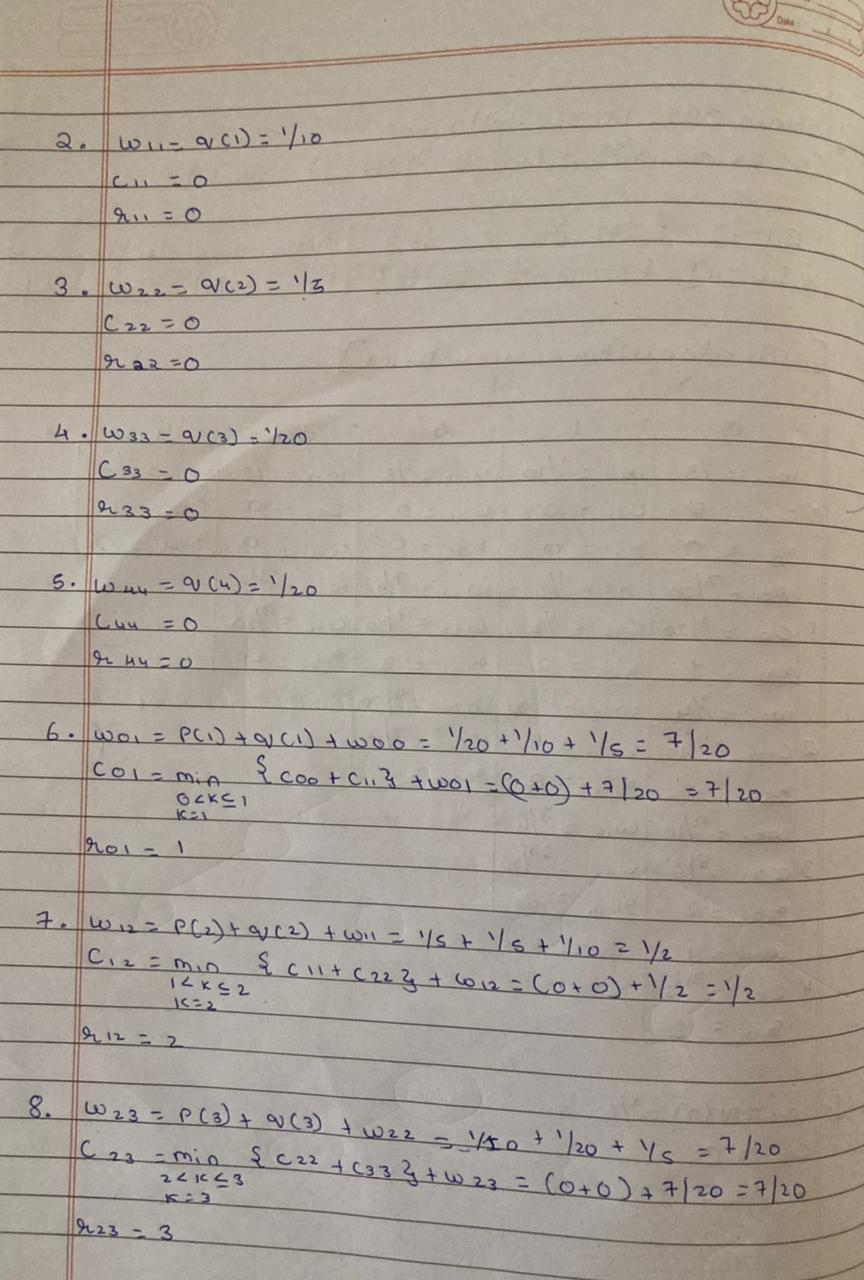 Date :
2. w11 = q(1) = 1/10
c11 = 0
r11 = 0
3. w22 = q(2) = 1/5
c22 = 0
r22 = 0
4. w33 = q(3) = 1/20
c33 = 0
r33 = 0
5. w44 = q(4) = 1/20
c44 = 0
r44 = 0
6. w01 = P(1) + q(1) + w00 = 1/20 + 1/10 + 1/5 = 7/20
c01 = min { c00 + c11 } + w01 = (0+0) + 7/20 = 7/20
0<k≤1
k=1
r01 = 1
7. w12 = P(2) + q(2) + w11 = 1/5 + 1/5 + 1/10 = 1/2
c12 = min { c11 + c22 } + w12 = (0+0) + 1/2 = 1/2
1<k≤2
k=2
r12 = 2
8. w23 = P(3) + q(3) + w22 = 1/10 + 1/20 + 1/5 = 7/20
c23 = min { c22 + c33 } + w23 = (0+0) + 7/20 = 7/20
2<k≤3
k=3
r23 = 3